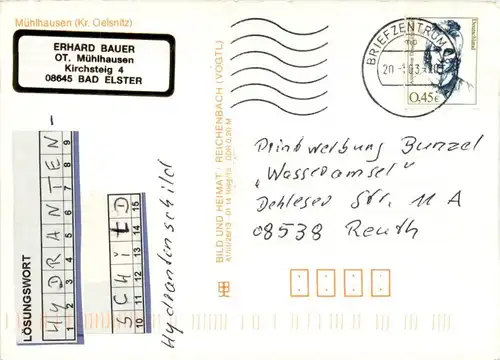 Mühlhausen (Kr. Oelsnitz)
ERHARD BAUER
OT. Mühlhausen
Kirchsteig 4
08645 BAD ELSTER
BRIEFZENTRUM
Deutschland
0,45€
BILD UND HEIMAT · REICHENBACH (VOGTL)
DDR 0,20 M
LÖSUNGSWORT
HYDRANTEN-
1 2 3 4 5 6 7 8 9
SCHILD
10 11 12 13 14 15
Hydrantenschild
Druckwerbung Bunzel
„Wasseramsel"
Dehleser Str. 11 A
08538 Reuth